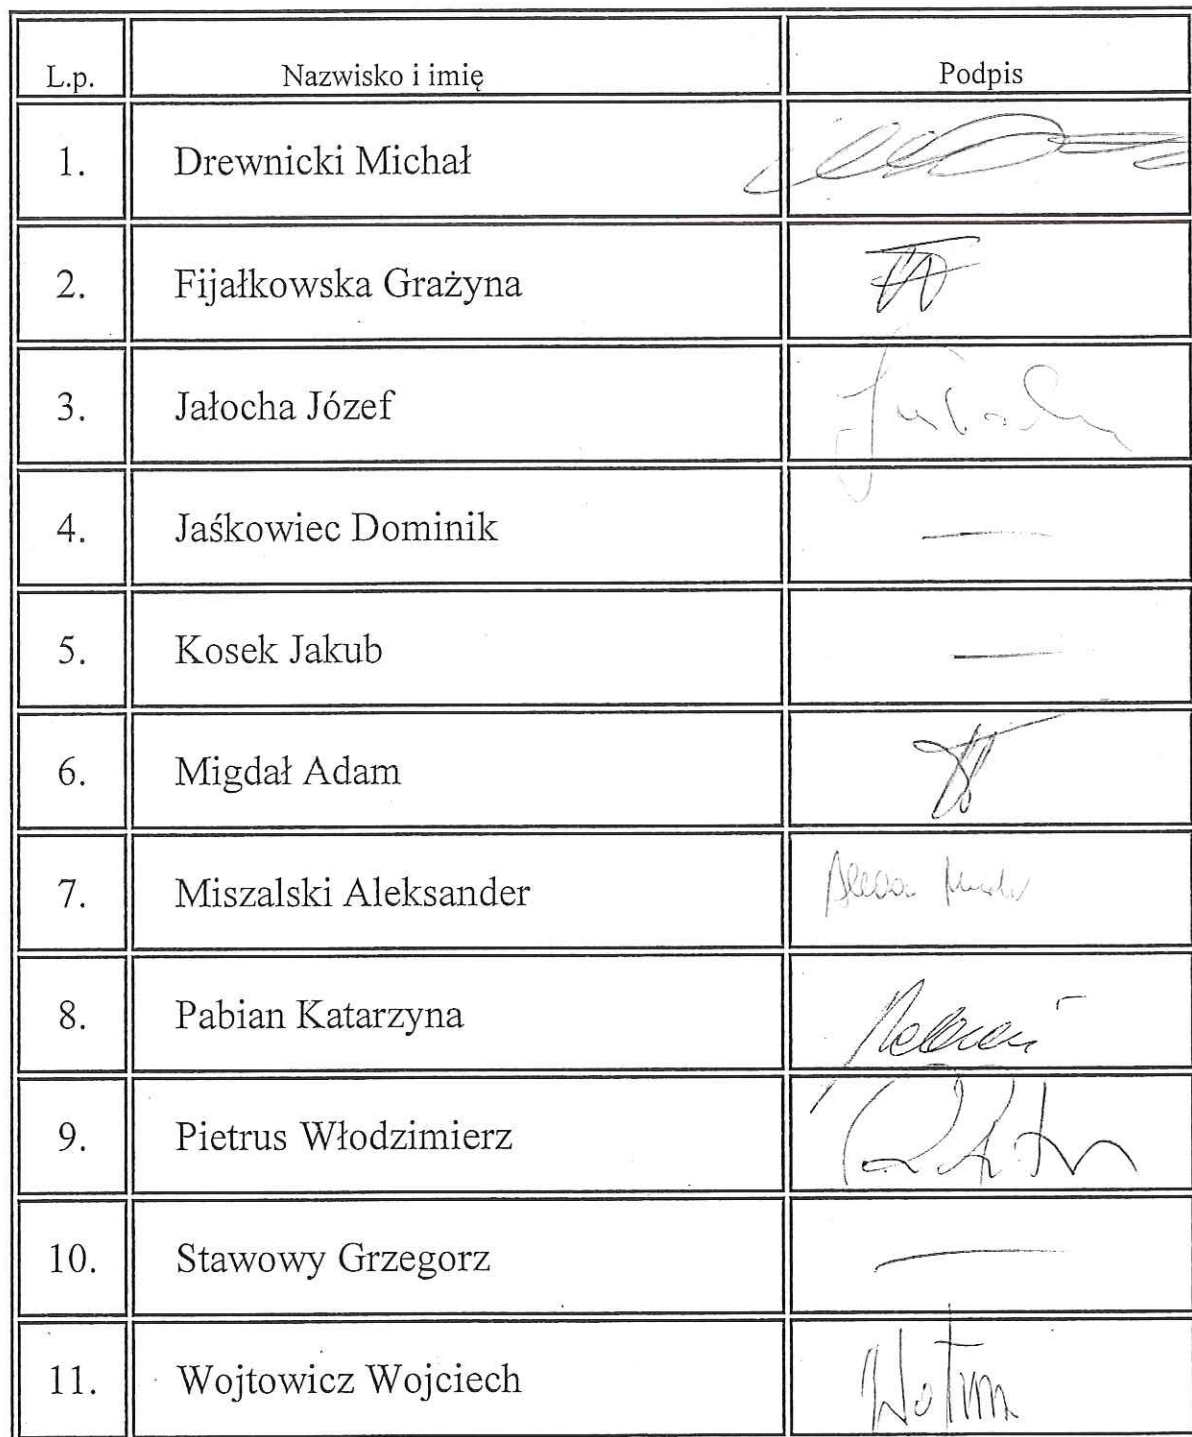 L.p. Nazwisko i imię Podpis
1. Drewnicki Michał
2. Fijałkowska Grażyna
3. Jałocha Józef
4. Jaśkowiec Dominik —
5. Kosek Jakub —
6. Migdał Adam
7. Miszalski Aleksander
8. Pabian Katarzyna
9. Pietrus Włodzimierz
10. Stawowy Grzegorz —
11. Wojtowicz Wojciech